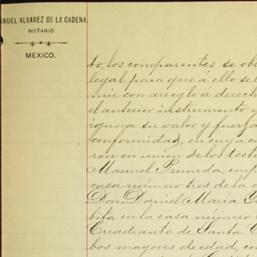 ANUEL ALVAREZ DE LA CADENA,
NOTARIO
MEXICO.
to, los comparentes se ob
legal para que á ello se
mie con arreglo á derech
el anterior instrumento y
ignora su valor y fuerza
conformidad, en cuya c
ron en union de los testi
Manuel Pruneda, emp
casa número tres de la c
Don Daniel Maria G
bita en la casa número
Cuadrante de Santa C
bos mayores de edad, con